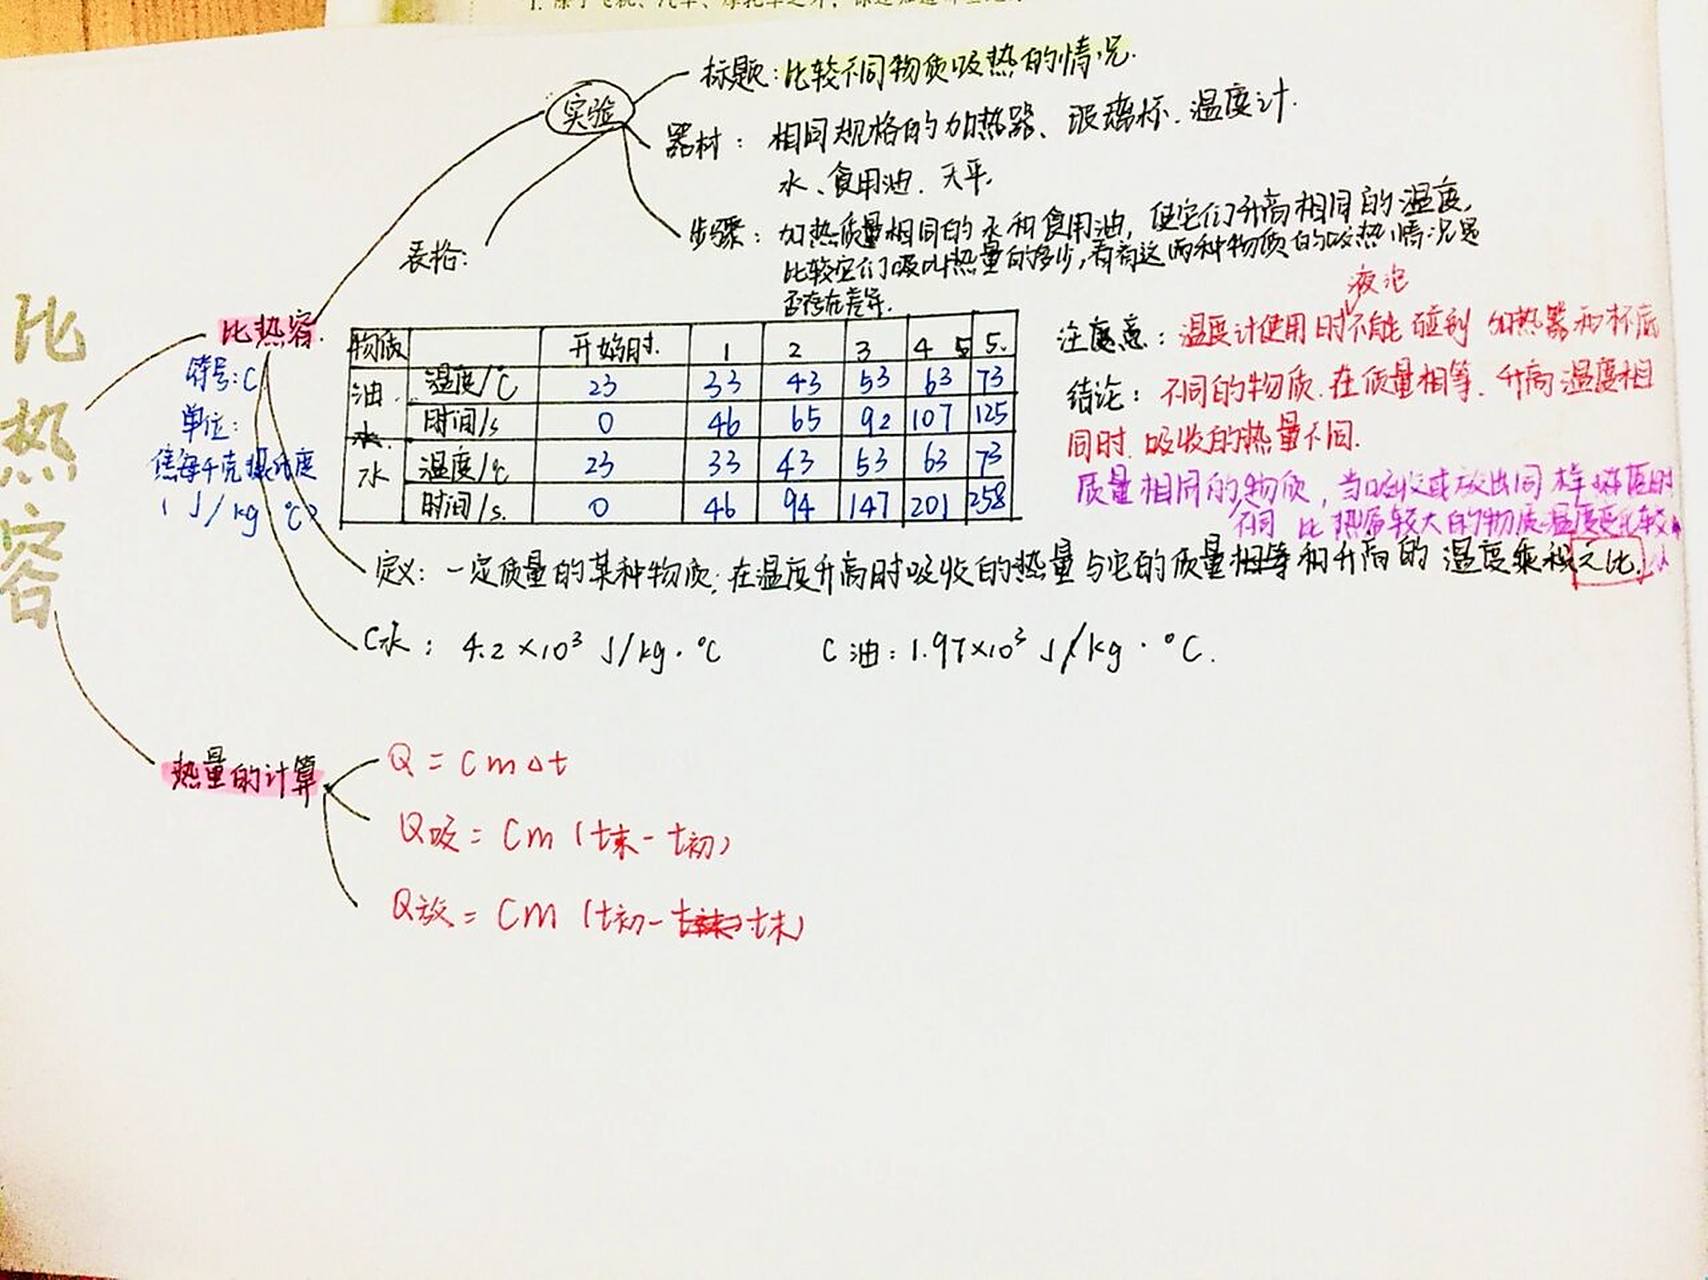 比热容
实验
标题：比较不同物质吸热的情况.
器材：相同规格的加热器、玻璃杯.温度计.
水、食用油.天平.
步骤：加热质量相同的水和食用油，使它们升高相同的温度，
比较它们吸收热量的多少，看看这两种物质的吸热情况是
否存在差异.
表格：
比热容.
符号：C
单位：
焦每千克摄氏度
(J/kg ℃)
物质 开始时. 1 2 3 4 5 5.
油. 温度/℃ 23 33 43 53 63 73
时间/s 0 46 65 92 107 125
水 温度/℃ 23 33 43 53 63 73
时间/s. 0 46 94 147 201 258
液泡
注意：温度计使用时不能碰到加热器和杯底
结论：不同的物质.在质量相等.升高温度相
同时.吸收的热量不同.
质量相同的物质，当吸收或放出同样热量时
不同 比热容较大的物质温度变化较小
定义：一定质量的某种物质，在温度升高时吸收的热量与它的质量相等和升高的温度乘积之比.
C水：4.2×10³ J/kg·℃ C油：1.97×10³ J/kg·℃.
热量的计算
Q=Cm△t
Q吸=Cm(t末-t初)
Q放=Cm(t初-t末)